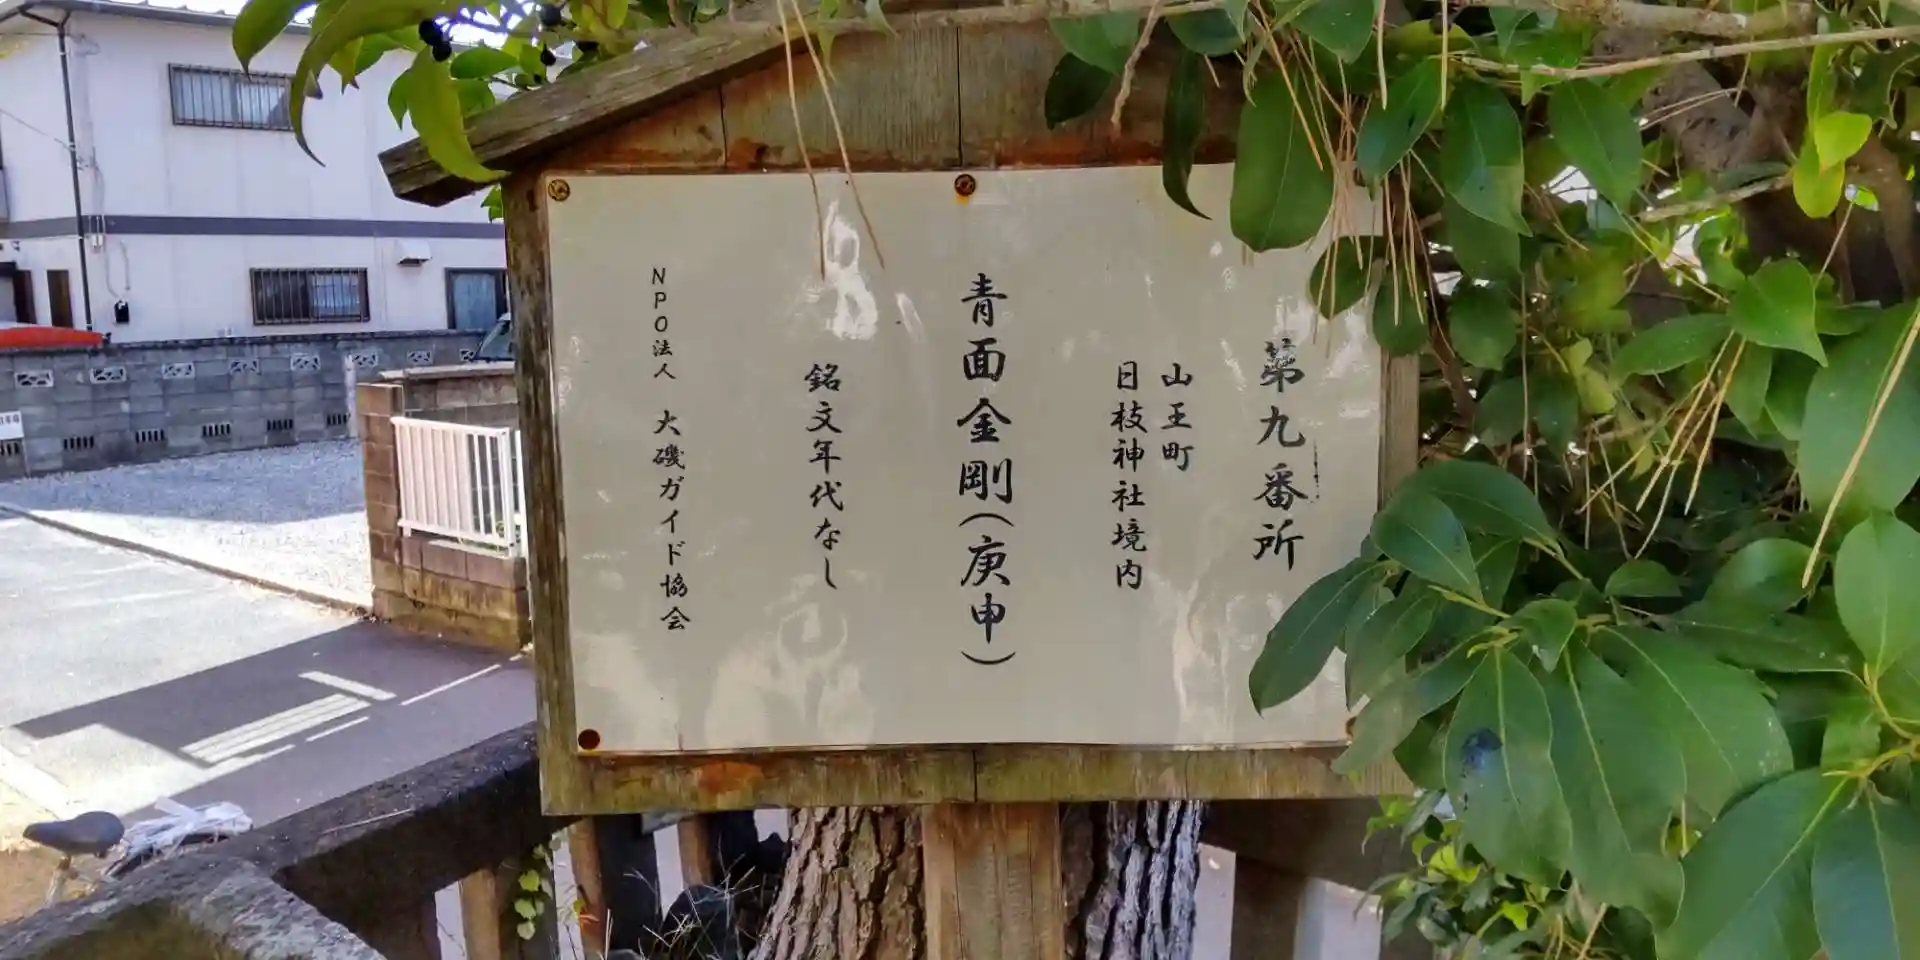 第九番所
山王町
日枝神社境内
青面金剛(庚申)
銘文年代なし
NPO法人 大磯ガイド協会